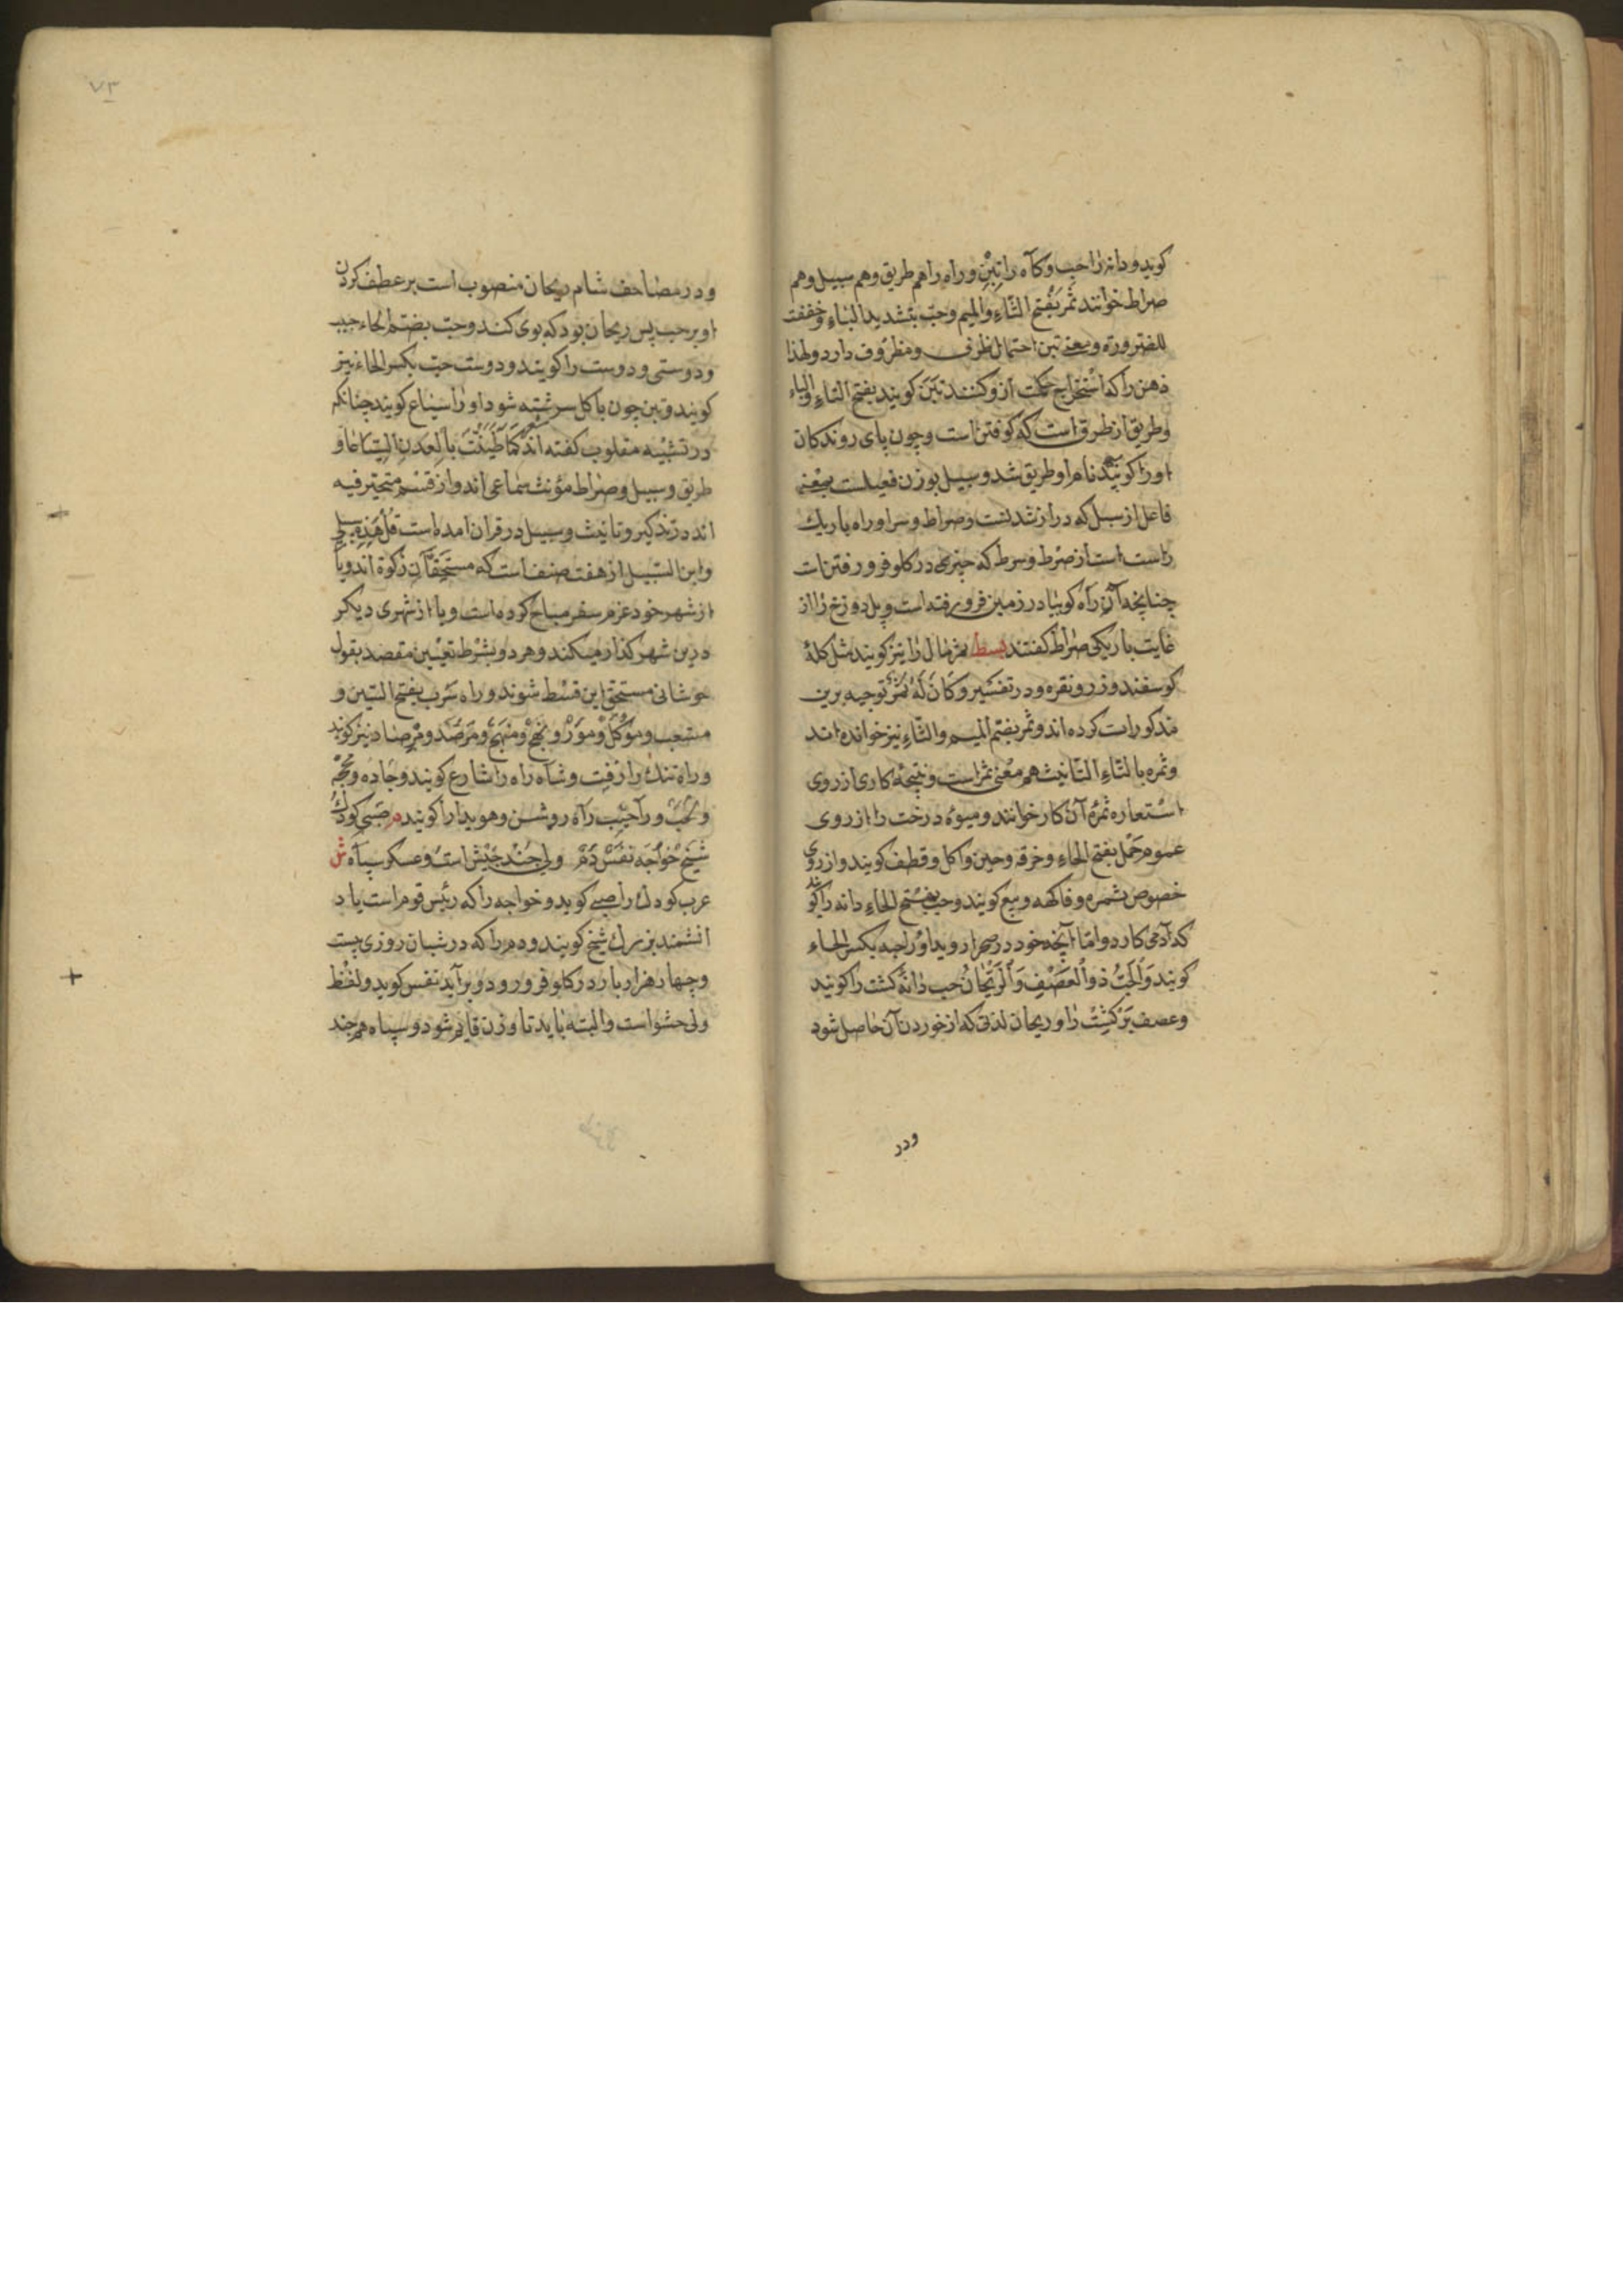 کویند و دانه را حب و کاه را تبن و راه را هم طریق و هم سبیل و هم
صراط خوانند ثمر بفتح الثاء والمیم و حب بتشدید الباء و خففت
للضرورة و معنی تبن احتمال ظرفی و مظروف دارد و لهذا
ذهن را که استخراج حکمت ازو کنند تبن کویند بفتح التاء والباء
و طریق از طرق است که کوفتن است و چون پای روندکان
اورا کوبند نام او طریق شد و سبیل بوزن فعیلست بمعنی
فاعل از سبل که دراز شدنست و صراط و سراو راه باریک
راست است از صرط و سرط که چیزی در کلو فرو رفتن ات
چنانچه آن راه کوییا در زمین فرو رفته است و پل دوزخ را از
غایت باریکی صراط کفتند بسط ثمر مال را نیز کویند مثل کلهٔ
کوسفند و زر و نقره و در تفسیر وَكَانَ لَهُ ثَمَرٌ توجیه برین
مذکورات کرده اند و ثمر بضم المیم والثاء نیز خوانده اند
و ثمره بالتاء التانیث هم معنی ثمر است و نتیجهٔ کاری از روی
استعاره ثمرهٔ آن کار خوانند و میوهٔ درخت را از روی
عموم حمل بفتح الحاء و خرفه و حین و اکل و قطف کویند و از روی
خصوص ثمره و فاکهه و ینع کویند و حب بفتح الحاء دانه را کویند
که آدمی کارد و اما آنچه خود در صحرا روید اورا حبه بکسر الحاء
کویند وَالْحَبُّ ذُو الْعَصْفِ وَالرَّيْحَانُ حب دانهٔ کشت را کویند
و عصف برک کشت را و ریحان لذتی که از خوردن آن حاصل شود
ودر
٧٣
و در مصاحف شام ریحان منصوب است بر عطف کردن
او بر حب پس ریحان بود که بوی کنند و حب بضم الحاء حبیب
و دوستی و دوست را کویند و دوست حب بکسر الحاء نیز
کویند و تبن چون باکل سرشته شود اورا سیاع کویند چنانکه
در تشبیه مقلوب کفته اند شعر کَمَا طَیَّنْتَ بِالْفَدَنِ السِّیَاعَا و
طریق و سبیل و صراط مؤنث سماعی اند و از قسم متخیر فیه
اند در تذکیر و تانیث و سبیل در قران امده است قُلْ هَذِهِ سَبِيلِي
و ابن السبیل از هفت صنف است که مستحقان زکوة اند و یا
از شهر خود عزم سفر مباح کرده است و یا از شهری دیکر
درین شهر کذار میکند و هر دو بشرط تعیین مقصد بقول
مستحق این قسط شوند و راه سرب بفتح السین و
و نهج و منهج و مرصد و مرصاد نیز کویند
و راه تنک را زفت و شاه راه را شارع کویند و جاده و محجه
و لحب و راه روشن و هویدا را کویند م صبی کودک
شیخ خواجه نفس دم ولی جند جیش است و عسکر سپاه ش
عرب کودک را صبی کوید و خواجه را که رئیس قوم است یا د
انشمند بزرک شیخ کویند و دم را که در شبان روزی بیست
و چهار هزار بار در کلو فرو رود و برآید نفس کوید و لفظ
ولی حشو است و البته باید تا وزن قایم شود و سپاه هم جند